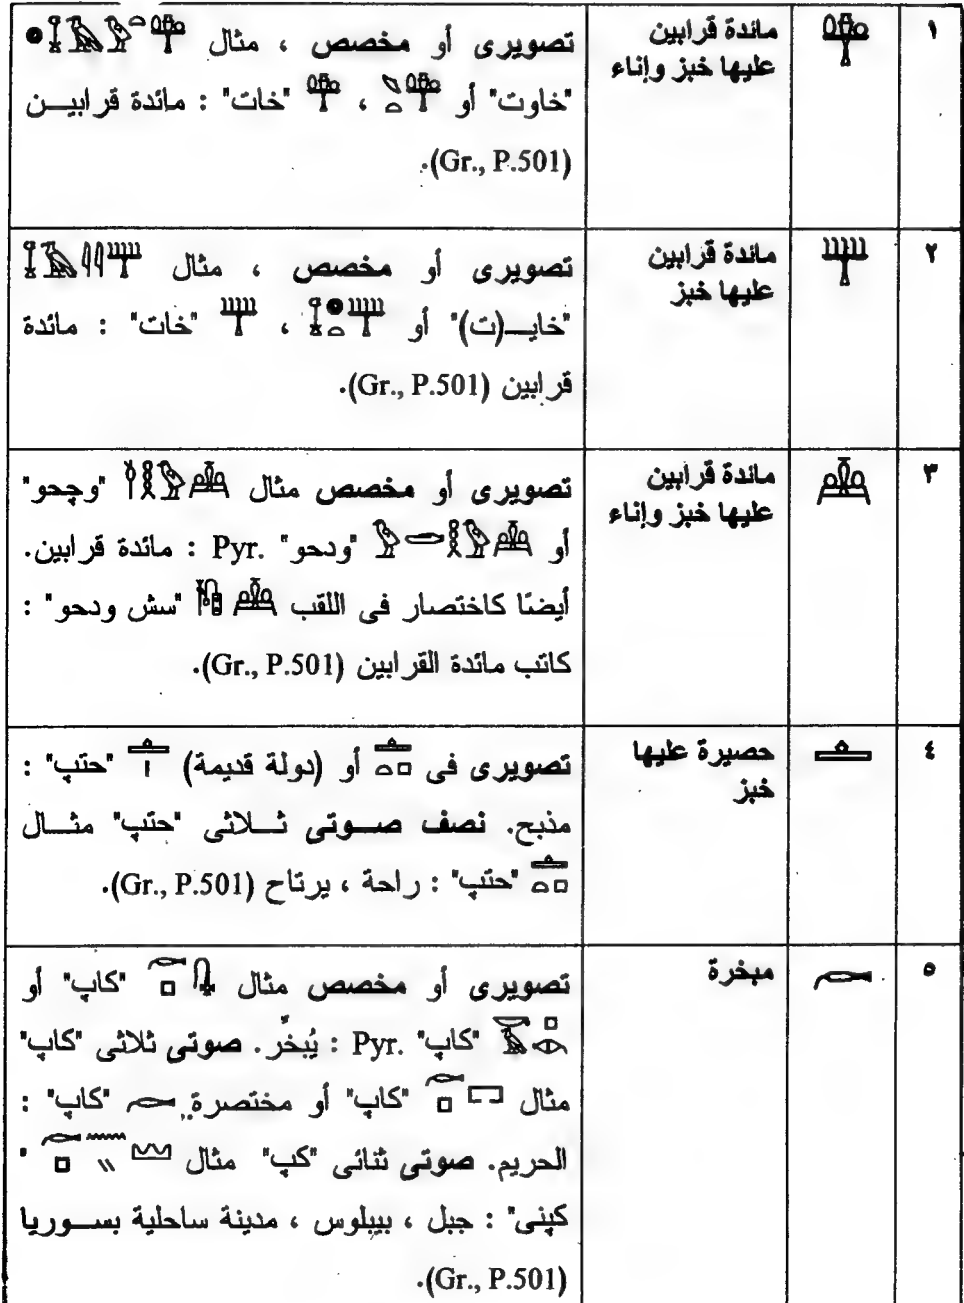 ١
مائدة قرابين
عليها خبز وإناء
تصويرى أو مخصص ، مثال
"خاوت" أو ، "خات" : مائدة قرابيـــن
(Gr., P.501).
٢
مائدة قرابين
عليها خبز
تصويرى أو مخصص ، مثال
"خايـــ(ت)" أو ، "خات" : مائدة
قرابين (Gr., P.501).
٣
مائدة قرابين
عليها خبز وإناء
تصويرى أو مخصص مثال "وچحو"
أو "ودحو" Pyr. : مائدة قرابين.
أيضًا كاختصار فى اللقب "سش ودحو" :
كاتب مائدة القرابين (Gr., P.501).
٤
حصيرة عليها
خبز
تصويرى فى أو (دولة قديمة) "حتپ" :
مذبح. نصف صـــوتى ثـــلاثى "حتپ" مثـــال
"حتپ" : راحة ، يرتاح (Gr., P.501).
٥
مبخرة
تصويرى أو مخصص مثال "كاپ" أو
"كاپ" Pyr. : يُبخِّر. صوتى ثلاثى "كاپ"
مثال "كاپ" أو مختصرة "كاپ" :
الحريم. صوتى ثنائى "كپ" مثال "
كپنى" : جبل ، بيبلوس ، مدينة ساحلية بســـوريا
(Gr., P.501).